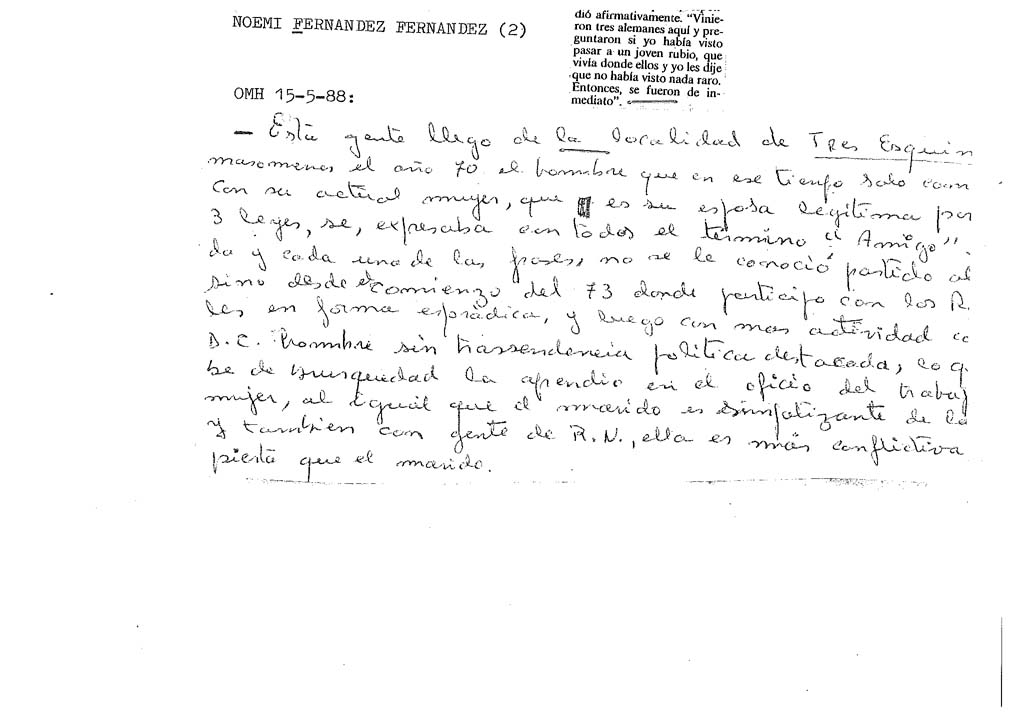 NOEMI FERNANDEZ FERNANDEZ (2)
dió afirmativamente. "Vinie-
ron tres alemanes aquí y pre-
guntaron si yo había visto
pasar a un joven rubio, que
vivía donde ellos y yo les dije
que no había visto nada raro.
Entonces, se fueron de in-
mediato".
OMH 15-5-88:
— Esta gente llego de la localidad de Tres Esquin
masomenos el año 70 el hombre que en ese tiempo solo
con su actual mujer, que es su esposa legitima por
3 leyes, se, expresaba con todos el término "Amigo".
da y cada una de las frases, no se le conoció partido al
sino desde el comienzo del 73 donde participo con los R.
les en forma espràdica, y luego con mas actividad
D.C. hombre sin trassendencia politica destacada, lo q.
be de busquedad la apendio en el oficio del trabaj
mujer, al igual que el marido es simpatizante de la
y tambien con gente de R.N., ella es más conflictiva
pierta que el marido.